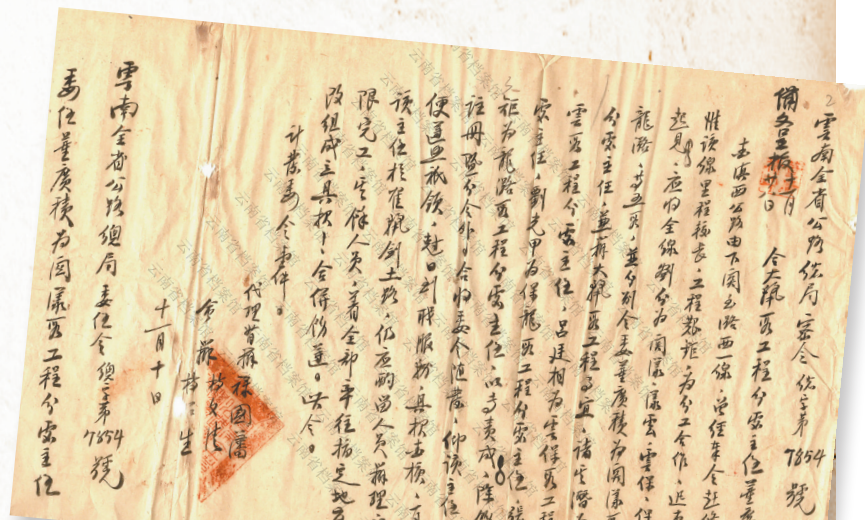 雲南全省公路總局密令 總字第7854號
十一月十日
令大瓢區工程分處主任董廣
查滇西公路由下関至潞西一線，曾經奉令赶修
惟該線里程極長，工程艱鉅，為分工合作，迅赴
起見，應將全線劃分為関漾、漾雲、雲保、保
龍潞，等五區，並分別令委董廣積為関漾區
分處主任，兼辦大瓢區工程事宜，諸
雲區工程分處主任，呂廷相為雲保區工程
處主任，劉光甲為保龍區工程分處主任，張
為龍潞區工程分處主任，以專責成，除
註冊暨分令外，合將委令隨發，仰該主任
便遵照祇領，尅日到職服務，具報查核，
該主任於 瓢劍土路，仍應酌留人員辦理，
限完工，其餘人員，着全部率往指定地
改組成立具報，合併飭遵，此令。
計發委令壹件。
代理督辦 祿國藩
會辦
十一月十日
雲南全省公路總局委任令 總字第7854號
委任董廣積為関漾區工程分處主任
云南省档案馆